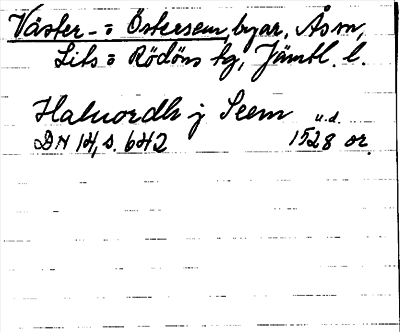 Väster- o Östersem, byar, Ås sn,
Lits o Rödöns tg, Jämtl. l.
Haluordh j Seem u.d.
DN 14, s. 642 1528 or.